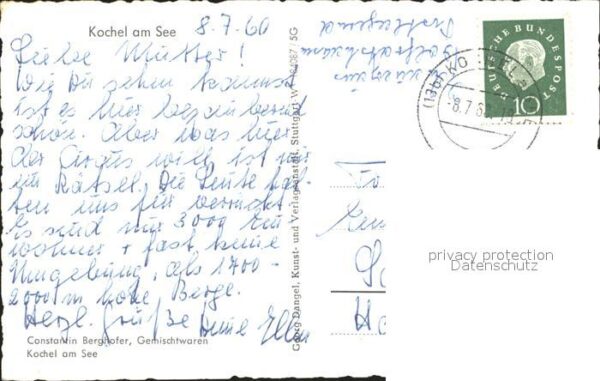 Kochel am See 8.7.60
Liebe Mutter!
Wie Du sehen kannst
ist es hier bezaubernd
schön. Aber was hier
der Circus will ist mir
ein Rätsel. Die Leute hal-
ten uns für verrückt.
Es sind nur 3000 Ein
wohner + fast keine
Umgebung, als 1700-
2000 m hohe Berge.
Herzl. Grüße Deine Ellen
Constantin Berghofer, Gemischtwaren
Kochel am See
Georg Dangel, Kunst- und Verlagsanstalt, Stuttgart W
5G
DEUTSCHE BUNDESPOST
10
(13b) KO
-8.7.6
privacy protection
Datenschutz